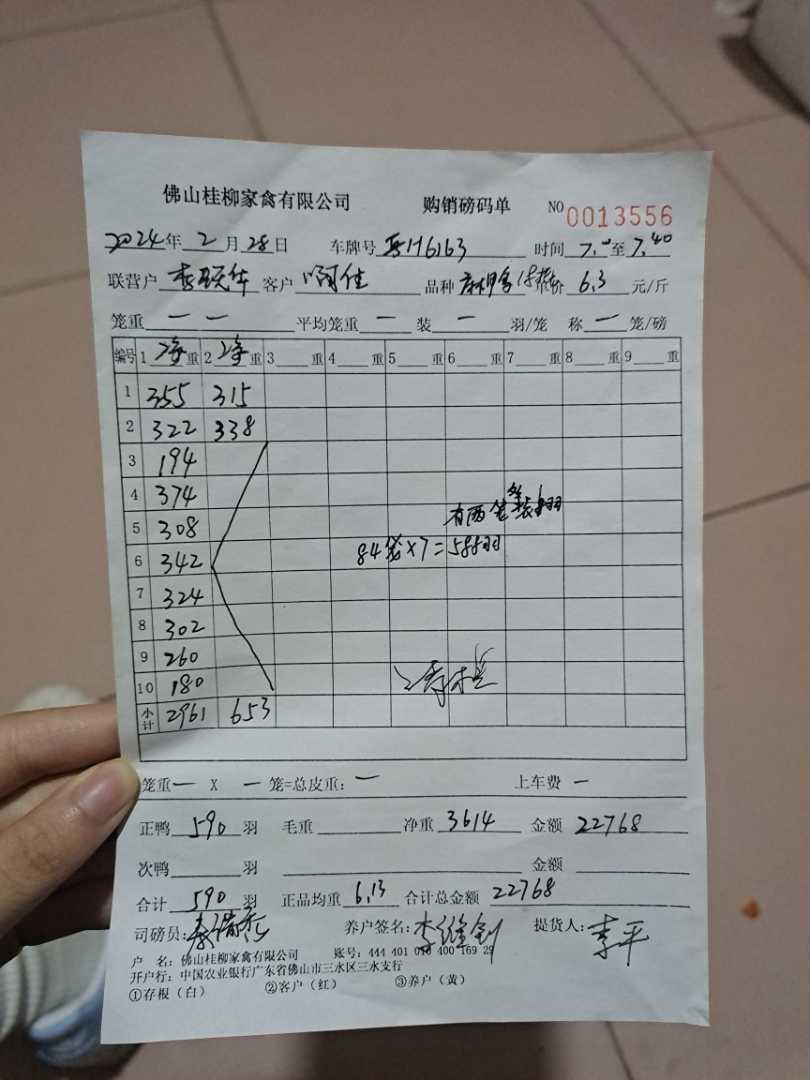 佛山桂柳家禽有限公司 购销磅码单 NO 0013556
2024年 2 月 28日 车牌号 粤H6163 时间 7.10至 7.40
联营户 客户 品种 价 6.3 元/斤
笼重 — — 平均笼重 — 装 — 羽/笼 称 — 笼/磅
编号 1 净重 2 净重 3 重 4 重 5 重 6 重 7 重 8 重 9 重
1 355 315
2 322 338
3 194
4 374
5 308 有两笼装8羽
6 342 84笼×7=588羽
7 324
8 302
9 260
10 180
小计 2961 653
笼重 — X — 笼=总皮重: — 上车费 —
正鸭 590 羽 毛重 净重 3614 金额 22768
次鸭 羽 金额
合计 590 羽 正品均重 6.13 合计总金额 22768
司磅员: 养户签名: 提货人: 李平
户 名: 佛山桂柳家禽有限公司 账号: 444 401 010 400 169 29
开户行: 中国农业银行广东省佛山市三水区三水支行
①存根(白) ②客户(红) ③养户(黄)